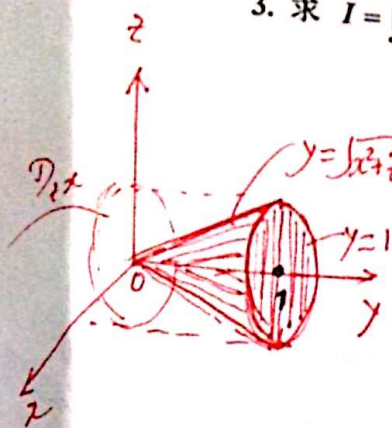 3. 求 I =
z
D_{zx}
y = √x²+z
y = 1
0
1
y
x